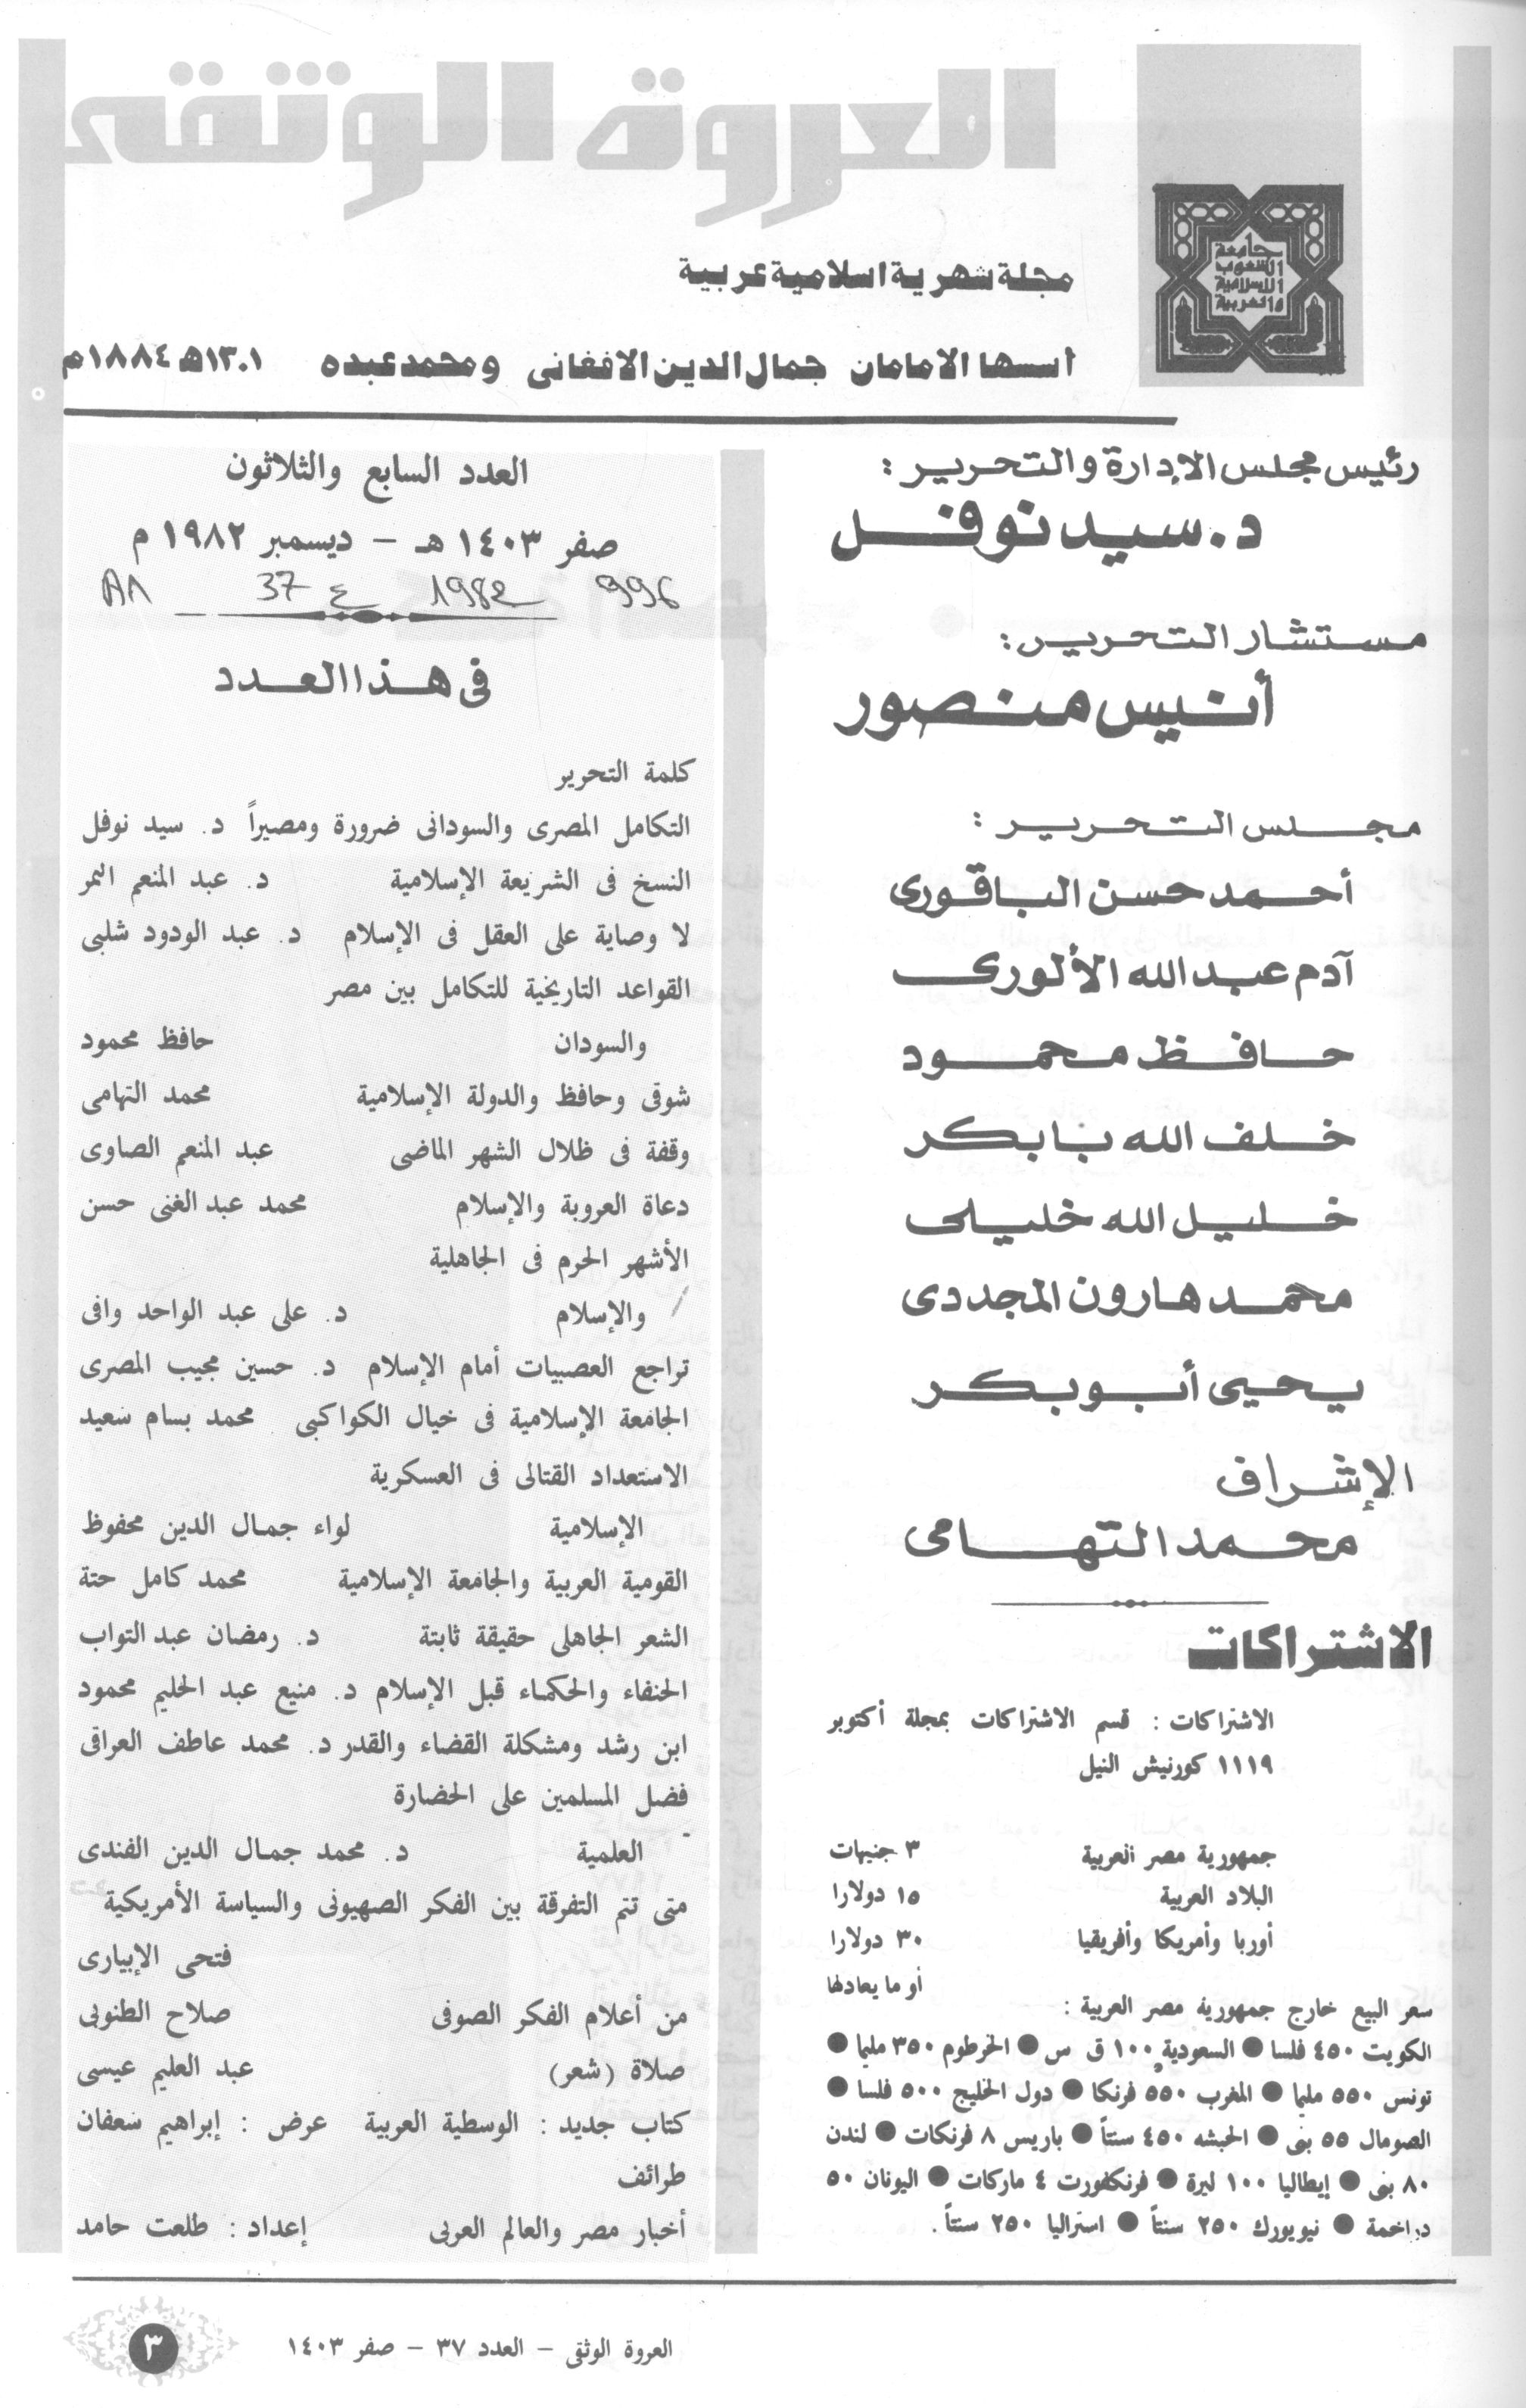 العروة الوثقى
جامعة
الشعوب
الإسلامية
والعربية
مجلة شهرية اسلامية عربية
أسسها الامامان جمال الدين الافغانى ومحمد عبده ١٣٠١هـ ١٨٨٤م
رئيس مجلس الإدارة والتحرير :
د. سيد نوفل
مستشار التحرير :
أنيس منصور
مجلس التحرير :
أحمد حسن الباقورى
آدم عبد الله الألورى
حافظ محمود
خلف الله بابكر
خليل الله خليلى
محمد هارون المجددى
يحيى أبو بكر
الإشراف
محمد التهامى
الاشتراكات
الاشتراكات : قسم الاشتراكات بمجلة أكتوبر
١١١٩ كورنيش النيل
جمهورية مصر العربية ٣ جنيهات
البلاد العربية ١٥ دولارا
أوربا وأمريكا وأفريقيا ٣٠ دولارا
أو ما يعادلها
سعر البيع خارج جمهورية مصر العربية :
الكويت ٤٥٠ فلسا ● السعودية ١٠٠ ق س ● الخرطوم ٣٥٠ مليما ●
تونس ٥٥٠ مليما ● المغرب ٥٥٠ فرنكا ● دول الخليج ٥٠٠ فلسا ●
الصومال ٥٥ بنى ● الحبشه ٤٥٠ سنتاً ● باريس ٨ فرنكات ● لندن
٨٠ بنى ● إيطاليا ١٠٠ ليرة ● فرنكفورت ٤ ماركات ● اليونان ٥٠
دراخمة ● نيويورك ٢٥٠ سنتاً ● استراليا ٢٥٠ سنتاً .
العدد السابع والثلاثون
صفر ١٤٠٣ هـ – ديسمبر ١٩٨٢ م
996 1982 ع 37 ٨٨
فى هذا العدد
كلمة التحرير
التكامل المصرى والسودانى ضرورة ومصيراً د. سيد نوفل
النسخ فى الشريعة الإسلامية د. عبد المنعم النمر
لا وصاية على العقل فى الإسلام د. عبد الودود شلبى
القواعد التاريخية للتكامل بين مصر
والسودان حافظ محمود
شوقى وحافظ والدولة الإسلامية محمد التهامى
وقفة فى ظلال الشهر الماضى عبد المنعم الصاوى
دعاة العروبة والإسلام محمد عبد الغنى حسن
الأشهر الحرم فى الجاهلية
والإسلام د. على عبد الواحد وافى
تراجع العصبيات أمام الإسلام د. حسين مجيب المصرى
الجامعة الإسلامية فى خيال الكواكبى محمد بسام سعيد
الاستعداد القتالى فى العسكرية
الإسلامية لواء جمال الدين محفوظ
القومية العربية والجامعة الإسلامية محمد كامل حتة
الشعر الجاهلى حقيقة ثابتة د. رمضان عبد التواب
الحنفاء والحكماء قبل الإسلام د. منيع عبد الحليم محمود
ابن رشد ومشكلة القضاء والقدر د. محمد عاطف العراقى
فضل المسلمين على الحضارة
العلمية د. محمد جمال الدين الفندى
متى تتم التفرقة بين الفكر الصهيونى والسياسة الأمريكية
فتحى الإبيارى
من أعلام الفكر الصوفى صلاح الطنوبى
صلاة (شعر) عبد العليم عيسى
كتاب جديد : الوسطية العربية عرض : إبراهيم سعفان
طرائف
أخبار مصر والعالم العربى إعداد : طلعت حامد
العروة الوثقى – العدد ٣٧ – صفر ١٤٠٣
٣